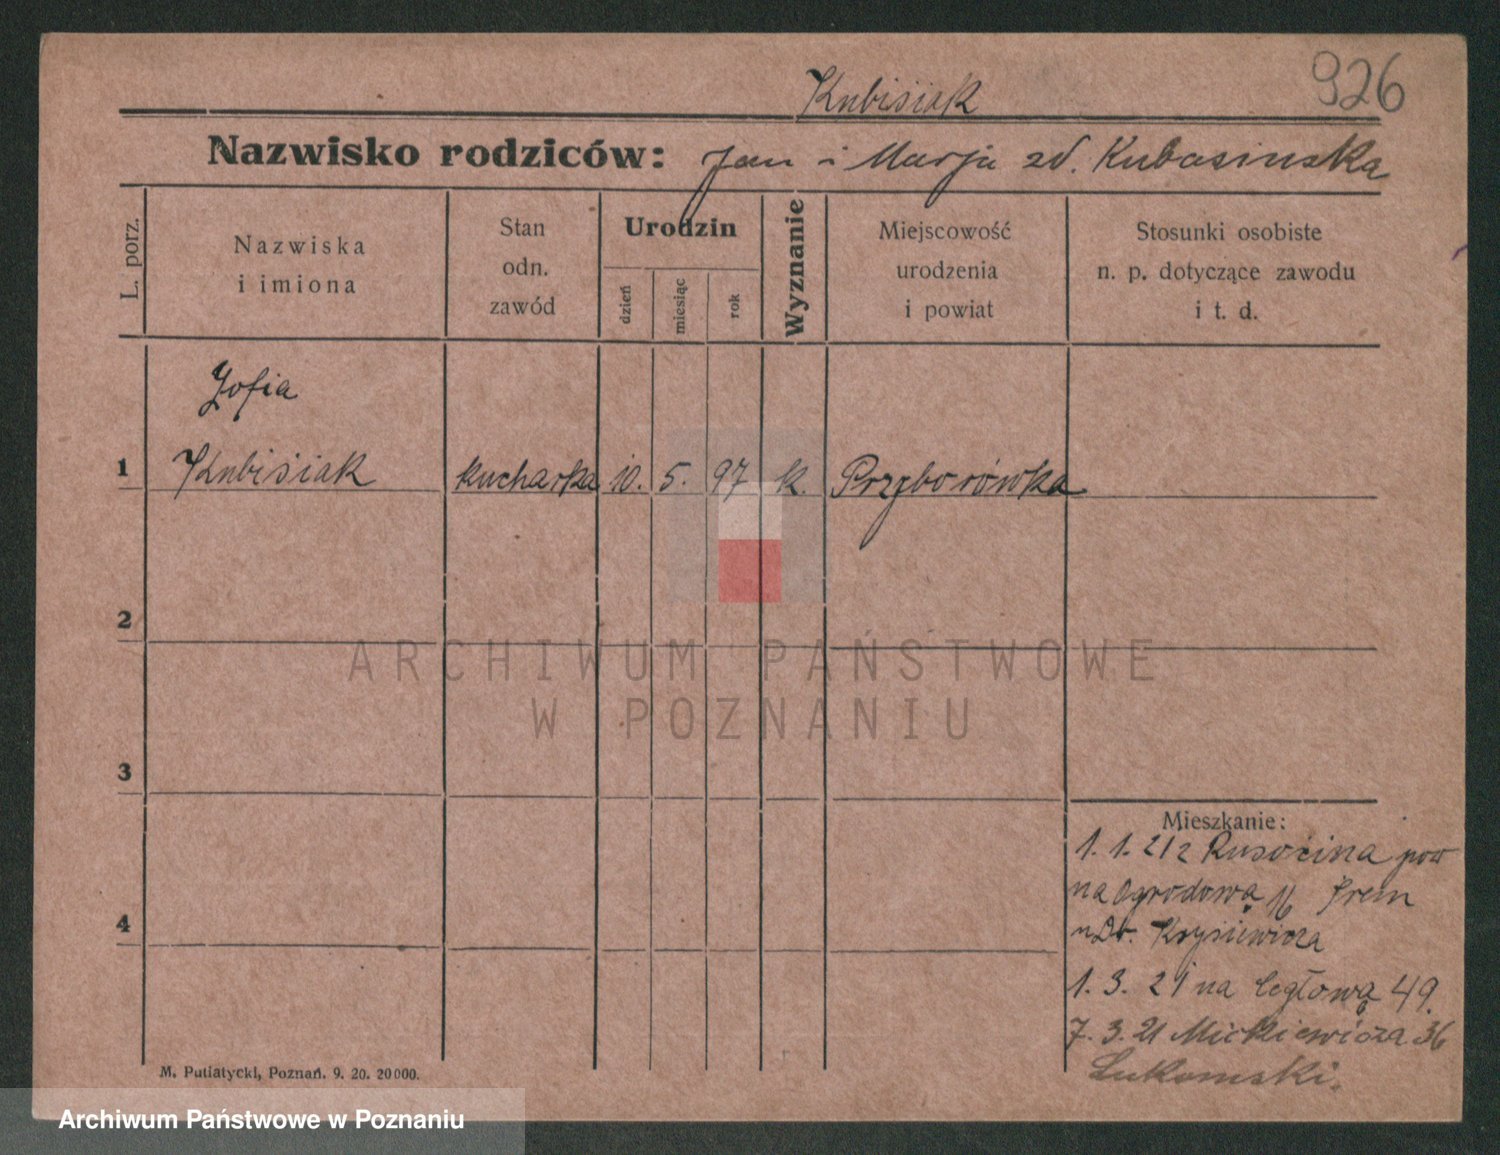 926
Kubisiak
Nazwisko rodziców: Jan i Marja zd. Kubasinska
L. porz.
Nazwiska
i imiona
Stan
odn.
zawód
Urodzin
dzień
miesiąc
rok
Wyznanie
Miejscowość
urodzenia
i powiat
Stosunki osobiste
n. p. dotyczące zawodu
i t. d.
Zofia
1 Kubisiak kucharka 10. 5. 97 k. Przyborówka
2
ARCHIWUM PAŃSTWOWE
W POZNANIU
3
Mieszkanie:
1. 1. 21 z Rusocina pow
na Ogrodową 16 Śrem
u Dr. Krysiewicza
4
1. 3. 21 na Cegłową 49.
7. 3. 21 Mickiewicza 36
Łukomski.
M. Putiatycki, Poznań. 9. 20. 20000.
Archiwum Państwowe w Poznaniu